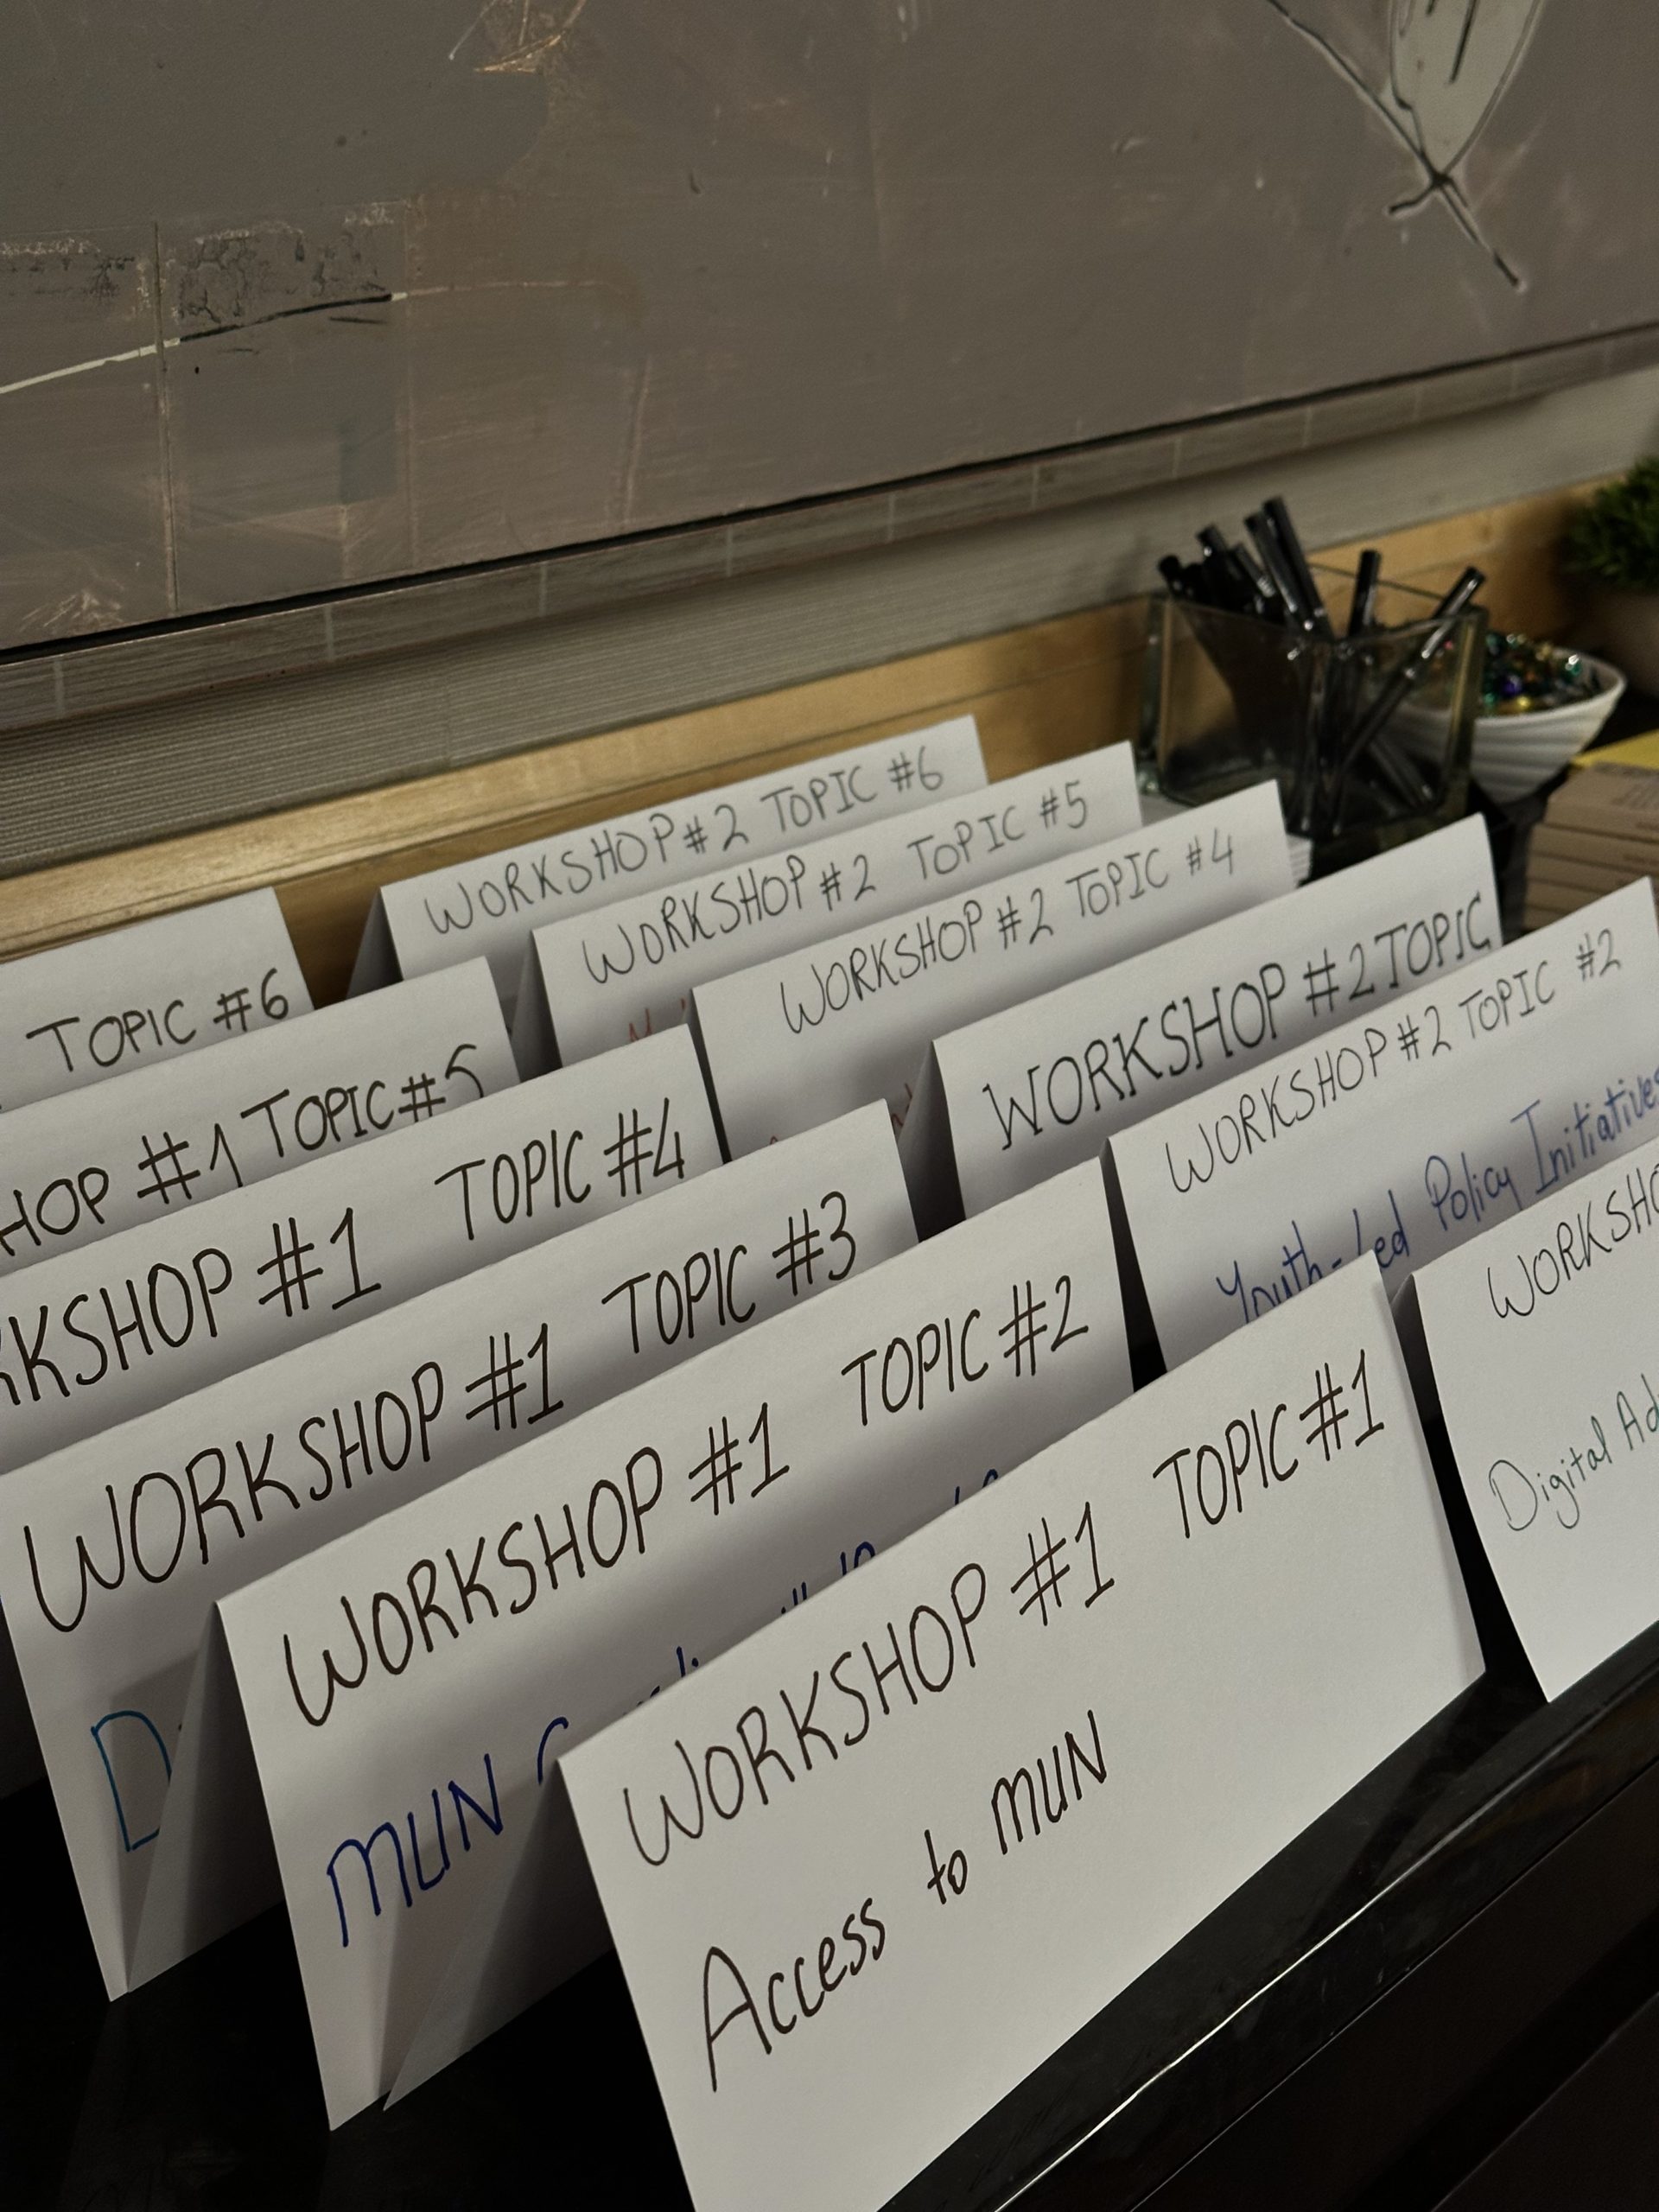 WORKSHOP #1 TOPIC #1
Access to MUN
WORKSHOP #1 TOPIC #2
MUN
WORKSHOP #1 TOPIC #3
D
#1 TOPIC #4
#1 TOPIC #5
TOPIC #6
Digital
WORKSHOP #2 TOPIC #2
Youth-Led Policy Initiatives
WORKSHOP #2 TOPIC
WORKSHOP #2 TOPIC #4
WORKSHOP #2 TOPIC #5
WORKSHOP #2 TOPIC #6